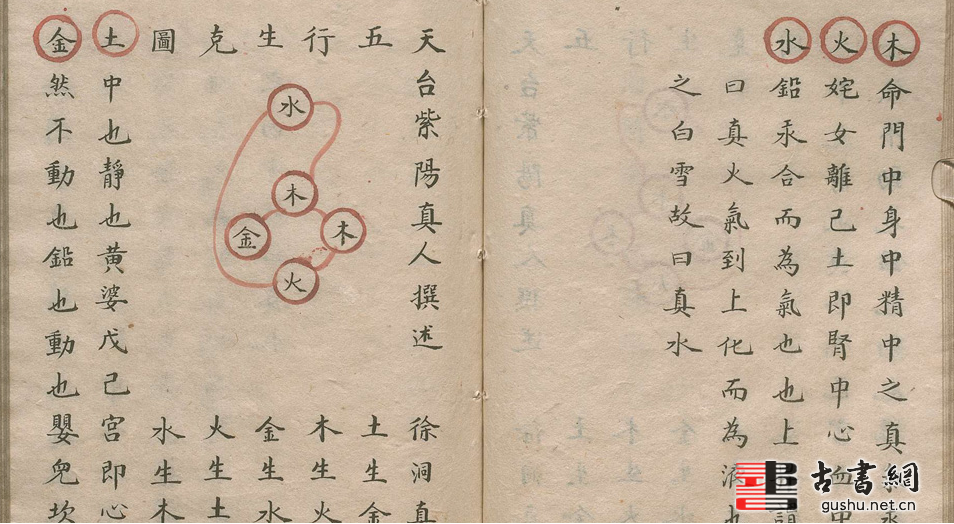 木命門中身中精中之真
火姹女離己土即腎中心血中
水鉛汞合而為氣也也上
曰真火氣到上化而為液也
之白雪故曰真水
五行生克圖
天台紫陽真人撰述
水
木
金
木
火
徐洞真
土生金
木生火
金生水
火生土
水生木
土中也靜也黃婆戊己宮即心
金然不動也鉛也動也嬰兒坎
古書網
gushu.net.cn